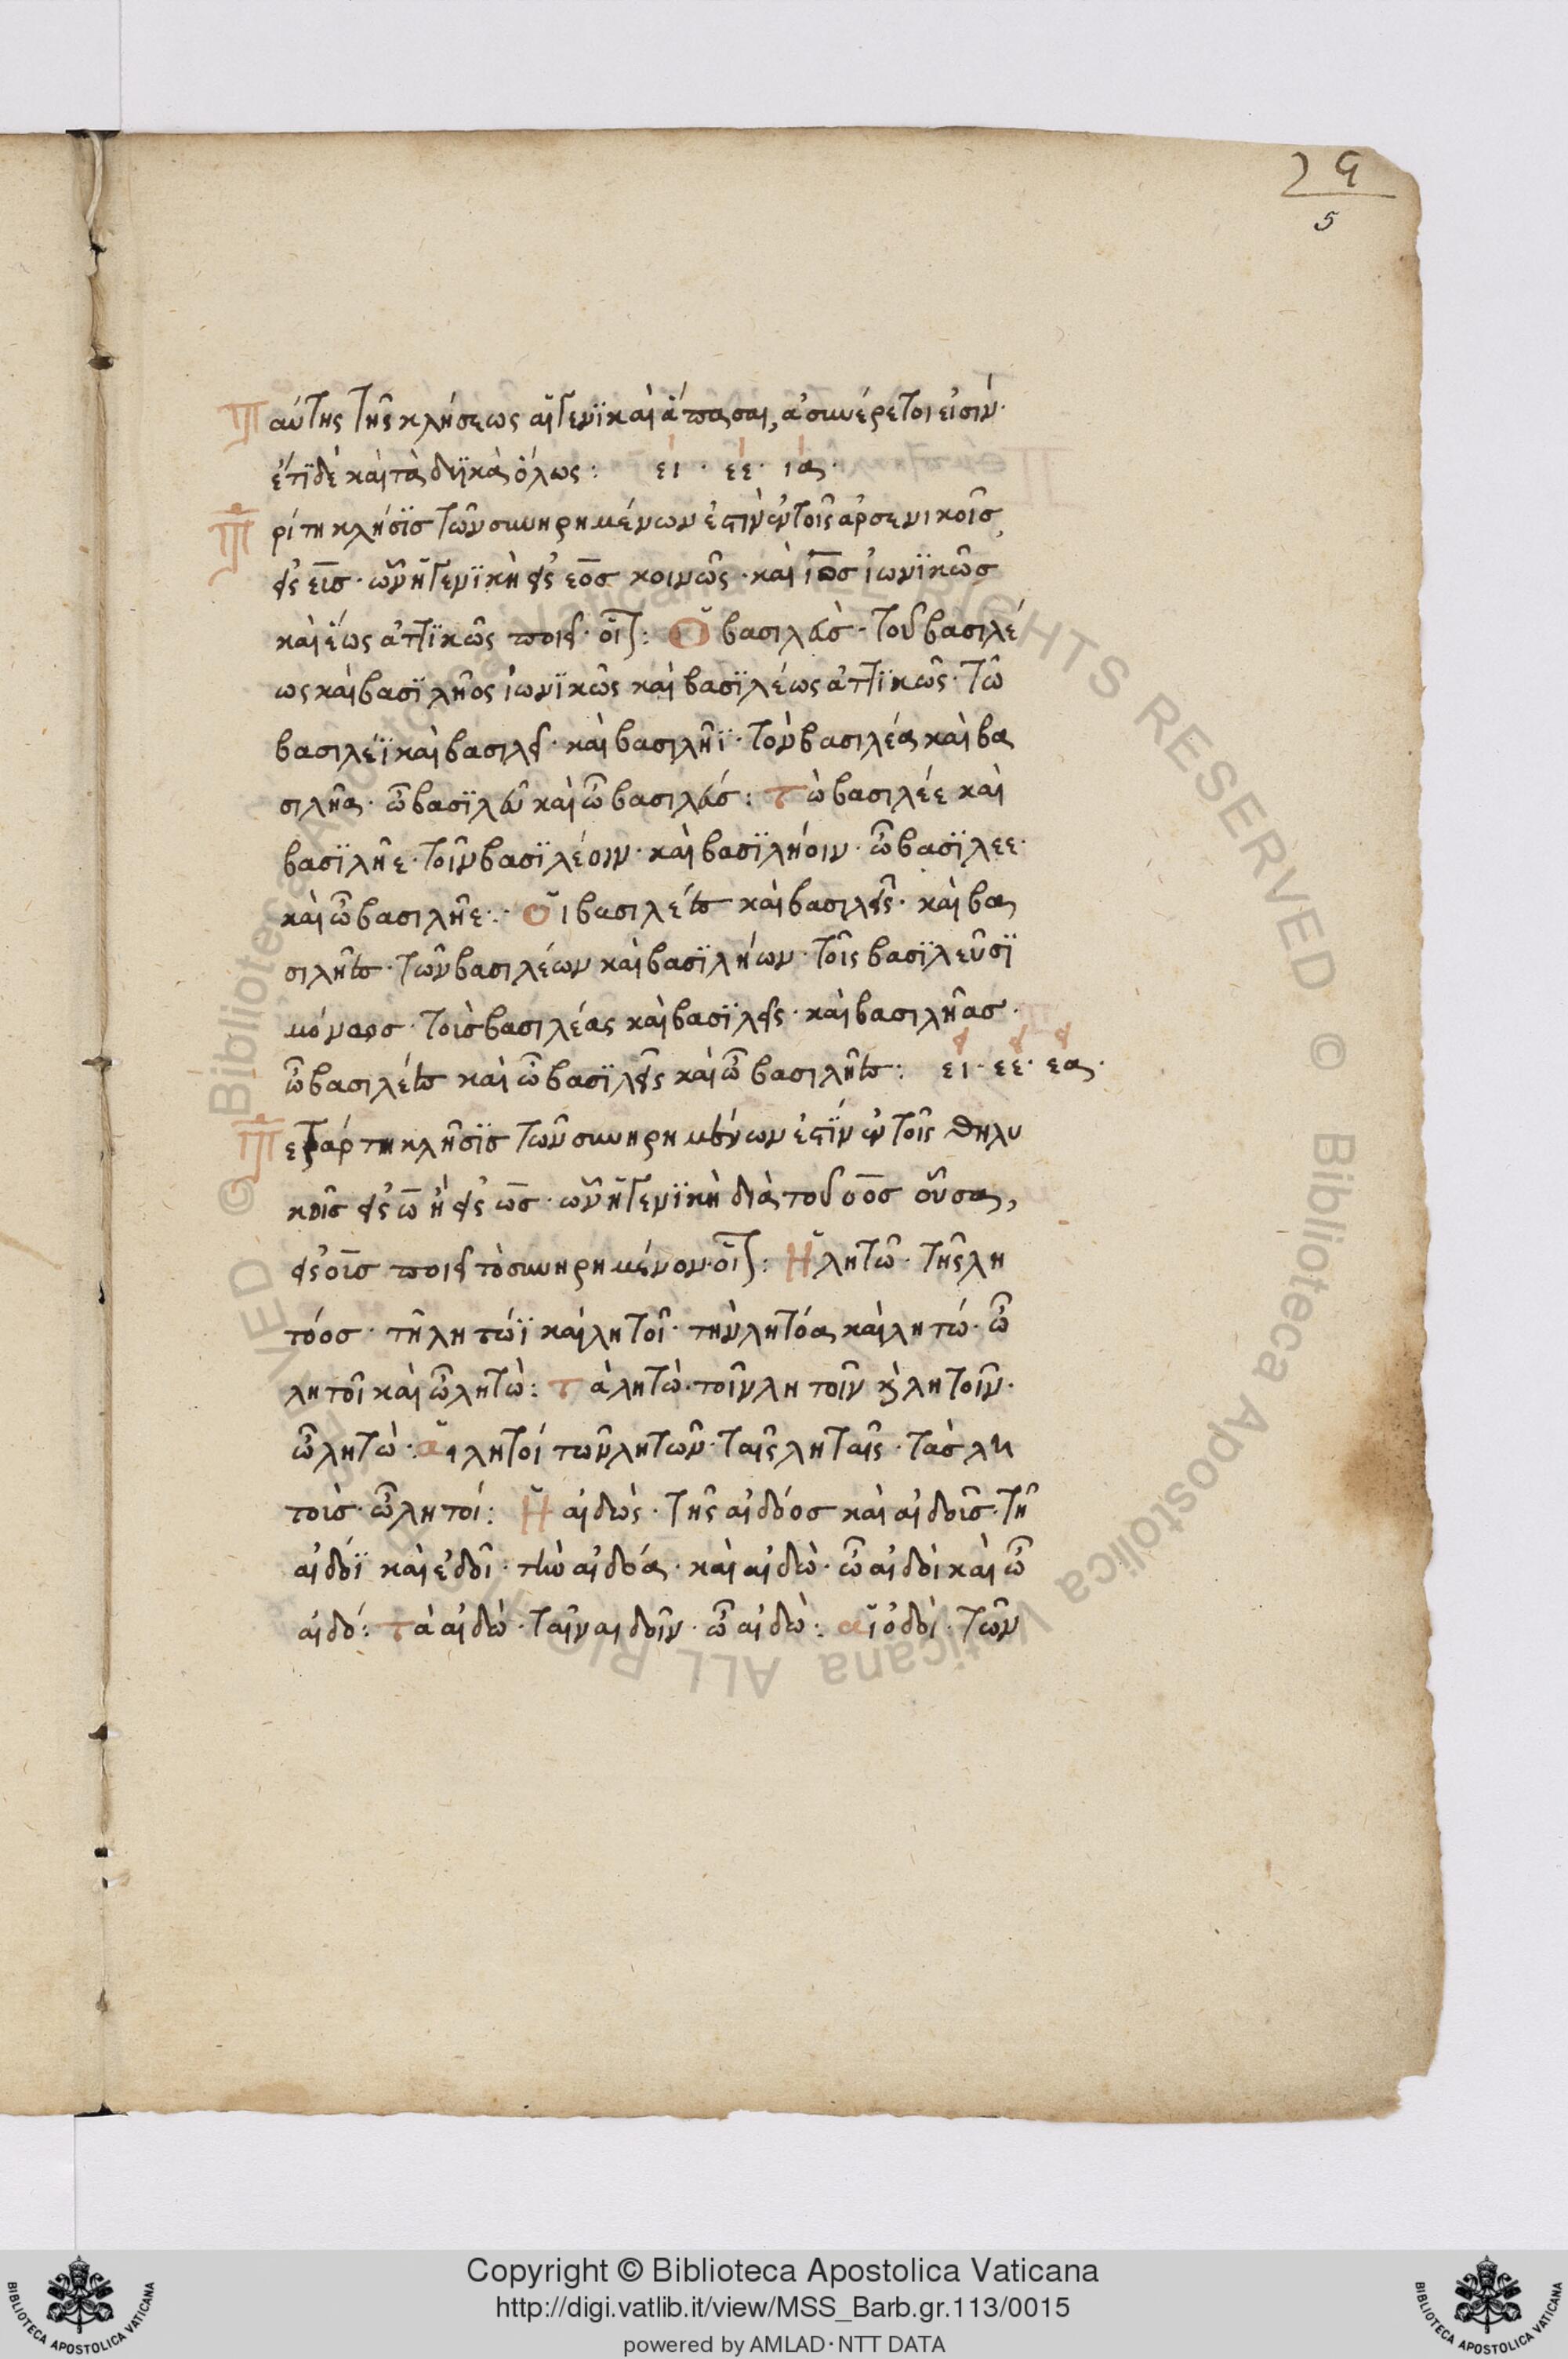 29
5
Ταύτης τῆς κλήσεως αἱ γενϊκαὶ ἅπασαι, ἀσυνέρετοι εἰσίν·
ἔτϊ δὲ καὶ τὰ δυϊκὰ ὅλως: ει · εε · ια·
Τρίτη κλήσϊς τῶν συνηρημένων ἐστὶν ἐν τοῖς ἀρσενικοῖς
εἰς εῖς · ὧν ἡ γενϊκὴ εἰς εος κοινῶς · καὶ ηος ἰωνϊκῶς
καὶ ἕως ἀττϊκῶς ποιεῖ· οἷον: Ὁ βασιλεὺς · τοῦ βασιλέ
ως καὶ βασϊλῆος ἰωνϊκῶς καὶ βασϊλέως ἀττϊκῶς · τῶ
βασιλέϊ καὶ βασιλεῖ · καὶ βασιλῆϊ · τὸν βασιλέα καὶ βα
σιλῆα · ὦ βασϊλεῦ καὶ ὦ βασιλεύς: τὼ βασιλέε καὶ
βασϊλῆε · τοῖν βασϊλέοιν · καὶ βασϊλήοιν · ὦ βασϊλεε·
καὶ ὦ βασιλῆε: Οἱ βασιλέες καὶ βασιλεῖς · καὶ βα
σιλῆες · τῶν βασιλέων καὶ βασϊλήων · τοῖς βασϊλεῦσϊ
μόνως · τοὺς βασιλέας καὶ βασϊλεῖς · καὶ βασιλῆας ·
ὦ βασιλέες καὶ ὦ βασϊλεῖς καὶ ὦ βασιλῆες: ει · εε · εα·
Τετάρτη κλῆσϊς τῶν συνηρημένων ἐστϊν ἐν τοῖς θηλυ
κοῖς εἰς ω ἢ εἰς ως · ὧν ἡ γενϊκὴ διὰ τοῦ οος οὖσα,
εἰς οῦς ποιεῖ τὸ συνηρημένον· οἷον: Ἡ λητῶ · τῆς λη
τόος · τῆ λητώϊ καὶ λητοῖ · τὴν λητόα καὶ λητώ · ὦ
λητοῖ καὶ ὦ λητὼ: τὰ λητὼ · τοῖν λητοῖν καὶ λητοῖν ·
ὦ λητὼ · αἱ λητοί τῶν λητῶν · ταῖς ληταῖς · τὰς λη
τοὺς · ὦ λητοί: Ἡ αἰδὼς · τῆς αἰδόος καὶ αἰδοῦς · τῆ
αἰδόϊ καὶ ἐδοῖ · τὴν αἰδόα · καὶ αἰδὼ · ὦ αἰδοὶ καὶ ὦ
αἰδό: τὰ αἰδὼ · ταῖν αιδοῖν · ὦ αἰδὼ: αἱ ὁδοὶ · τῶν
Copyright © Biblioteca Apostolica Vaticana
http://digi.vatlib.it/view/MSS_Barb.gr.113/0015
powered by AMLAD · NTT DATA
BIBLIOTECA APOSTOLICA VATICANA
BIBLIOTECA APOSTOLICA VATICANA